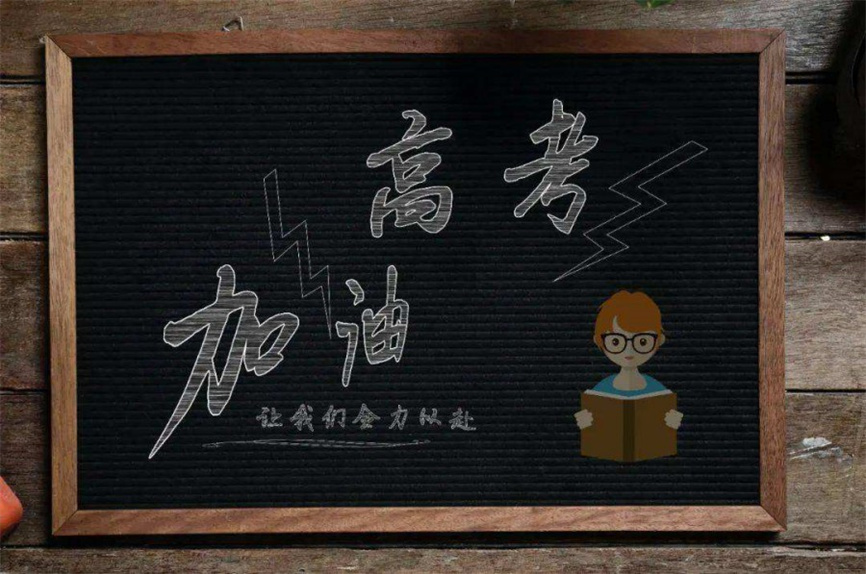 高考
加油
让我们全力以赴